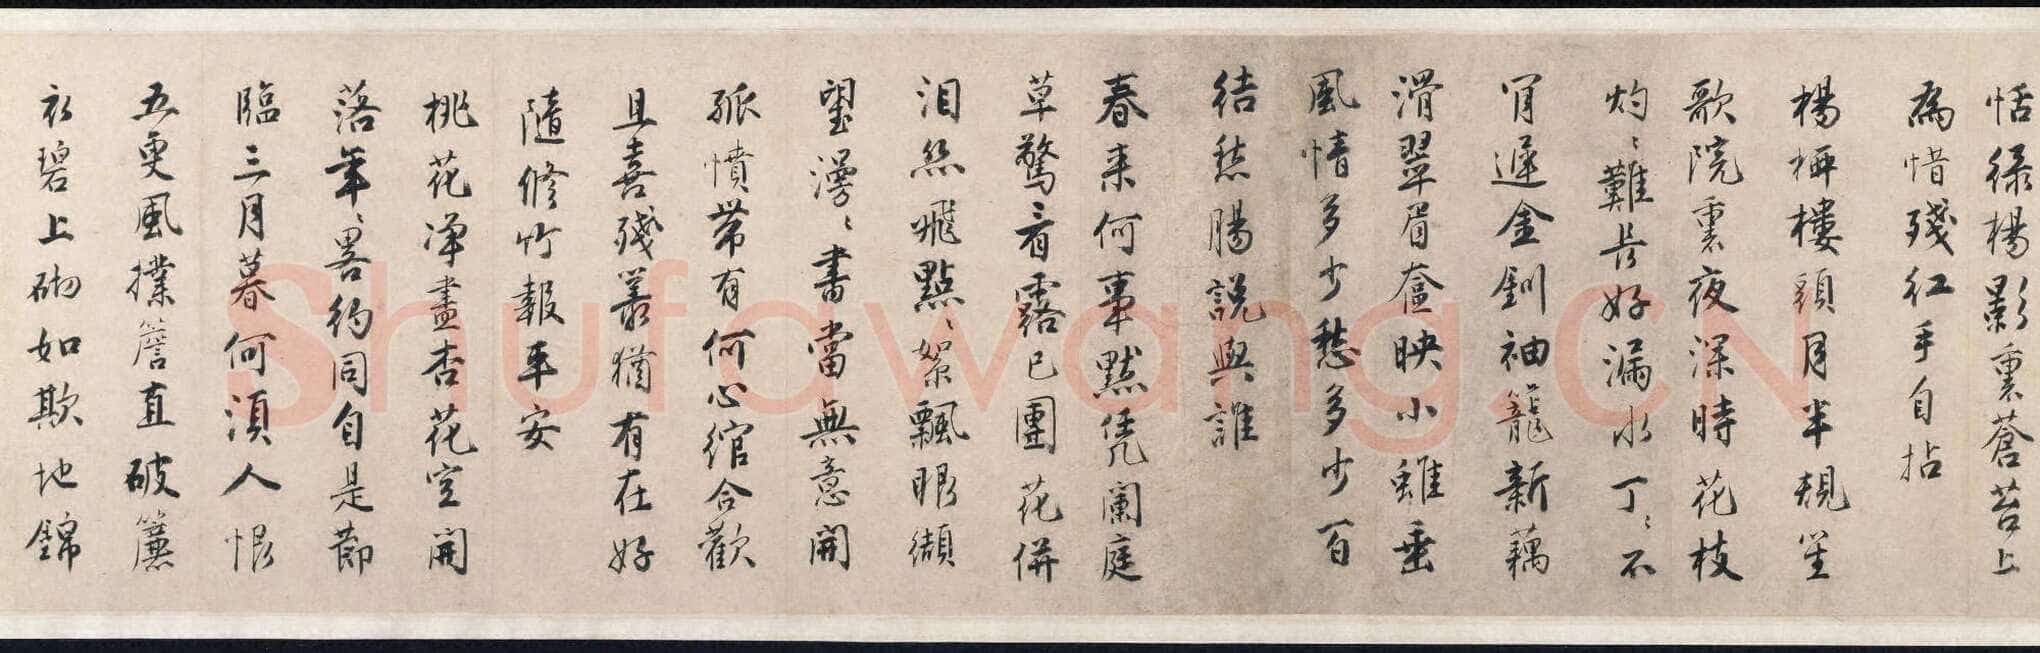 恬綠楊影裏蒼苔上
為惜殘紅手自拈
楊柳樓頭月半規笙
歌院裏夜深時花枝
灼〻難長好漏水丁〻不
肯遲金釧袖籠新藕
滑翠眉奩映小蛾垂
風情多少愁多少百
結愁腸說與誰
春來何事默凭闌庭
草驚看露已團花併
泪絲飛點〻絮飄眼纈
望漫〻書當無意開
孤憤帶有何心綰合歡
且喜殘叢猶有在好
隨修竹報平安
桃花淨盡杏花空開
落年〻畧約同自是節
臨三月暮何須人恨
五更風撲簷直破簾
衣碧上砌如欺地錦
Shufawang.CN